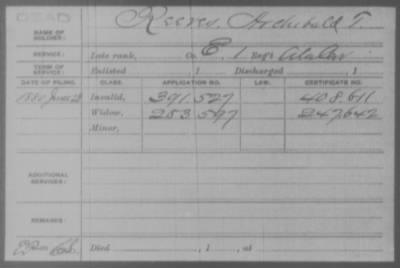 DEAD
NAME OF SOLDIER: Reeves, Archibald T.
SERVICE: Late rank, Co. E, 1 Reg't Ala Cav
TERM OF SERVICE: Enlisted 1 Discharged 1
DATE OF FILING. CLASS. APPLICATION NO. LAW. CERTIFICATE NO.
1880 June 28 Invalid, 391.527 408.611
Widow, 283.597 247.642
Minor,
ADDITIONAL SERVICES:
REMARKS:
Died , 1 , at